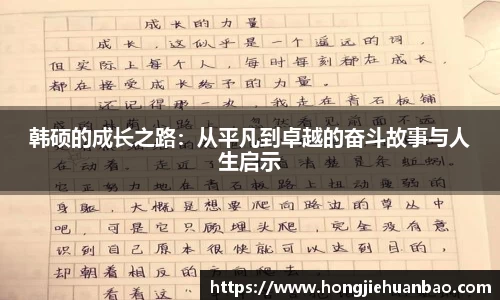 成长的力量
成长，这似乎是一个遥远的词，
但实际上每个人，每时每刻都在成长，
都在接受成长给予的力量。
还记得那一次，我走在青石板铺
韩硕的成长之路：从平凡到卓越的奋斗故事与人
生启示
它正努力地在青石板路上扭动
身躯，大概是想要爬向路边的草丛中
吧，可是它只顾埋头爬，完全没有意
识到自己原本很快就可以达到目的，
却朝着相反的方向爬去
看着这
https://www.hongjiehuanbao.com